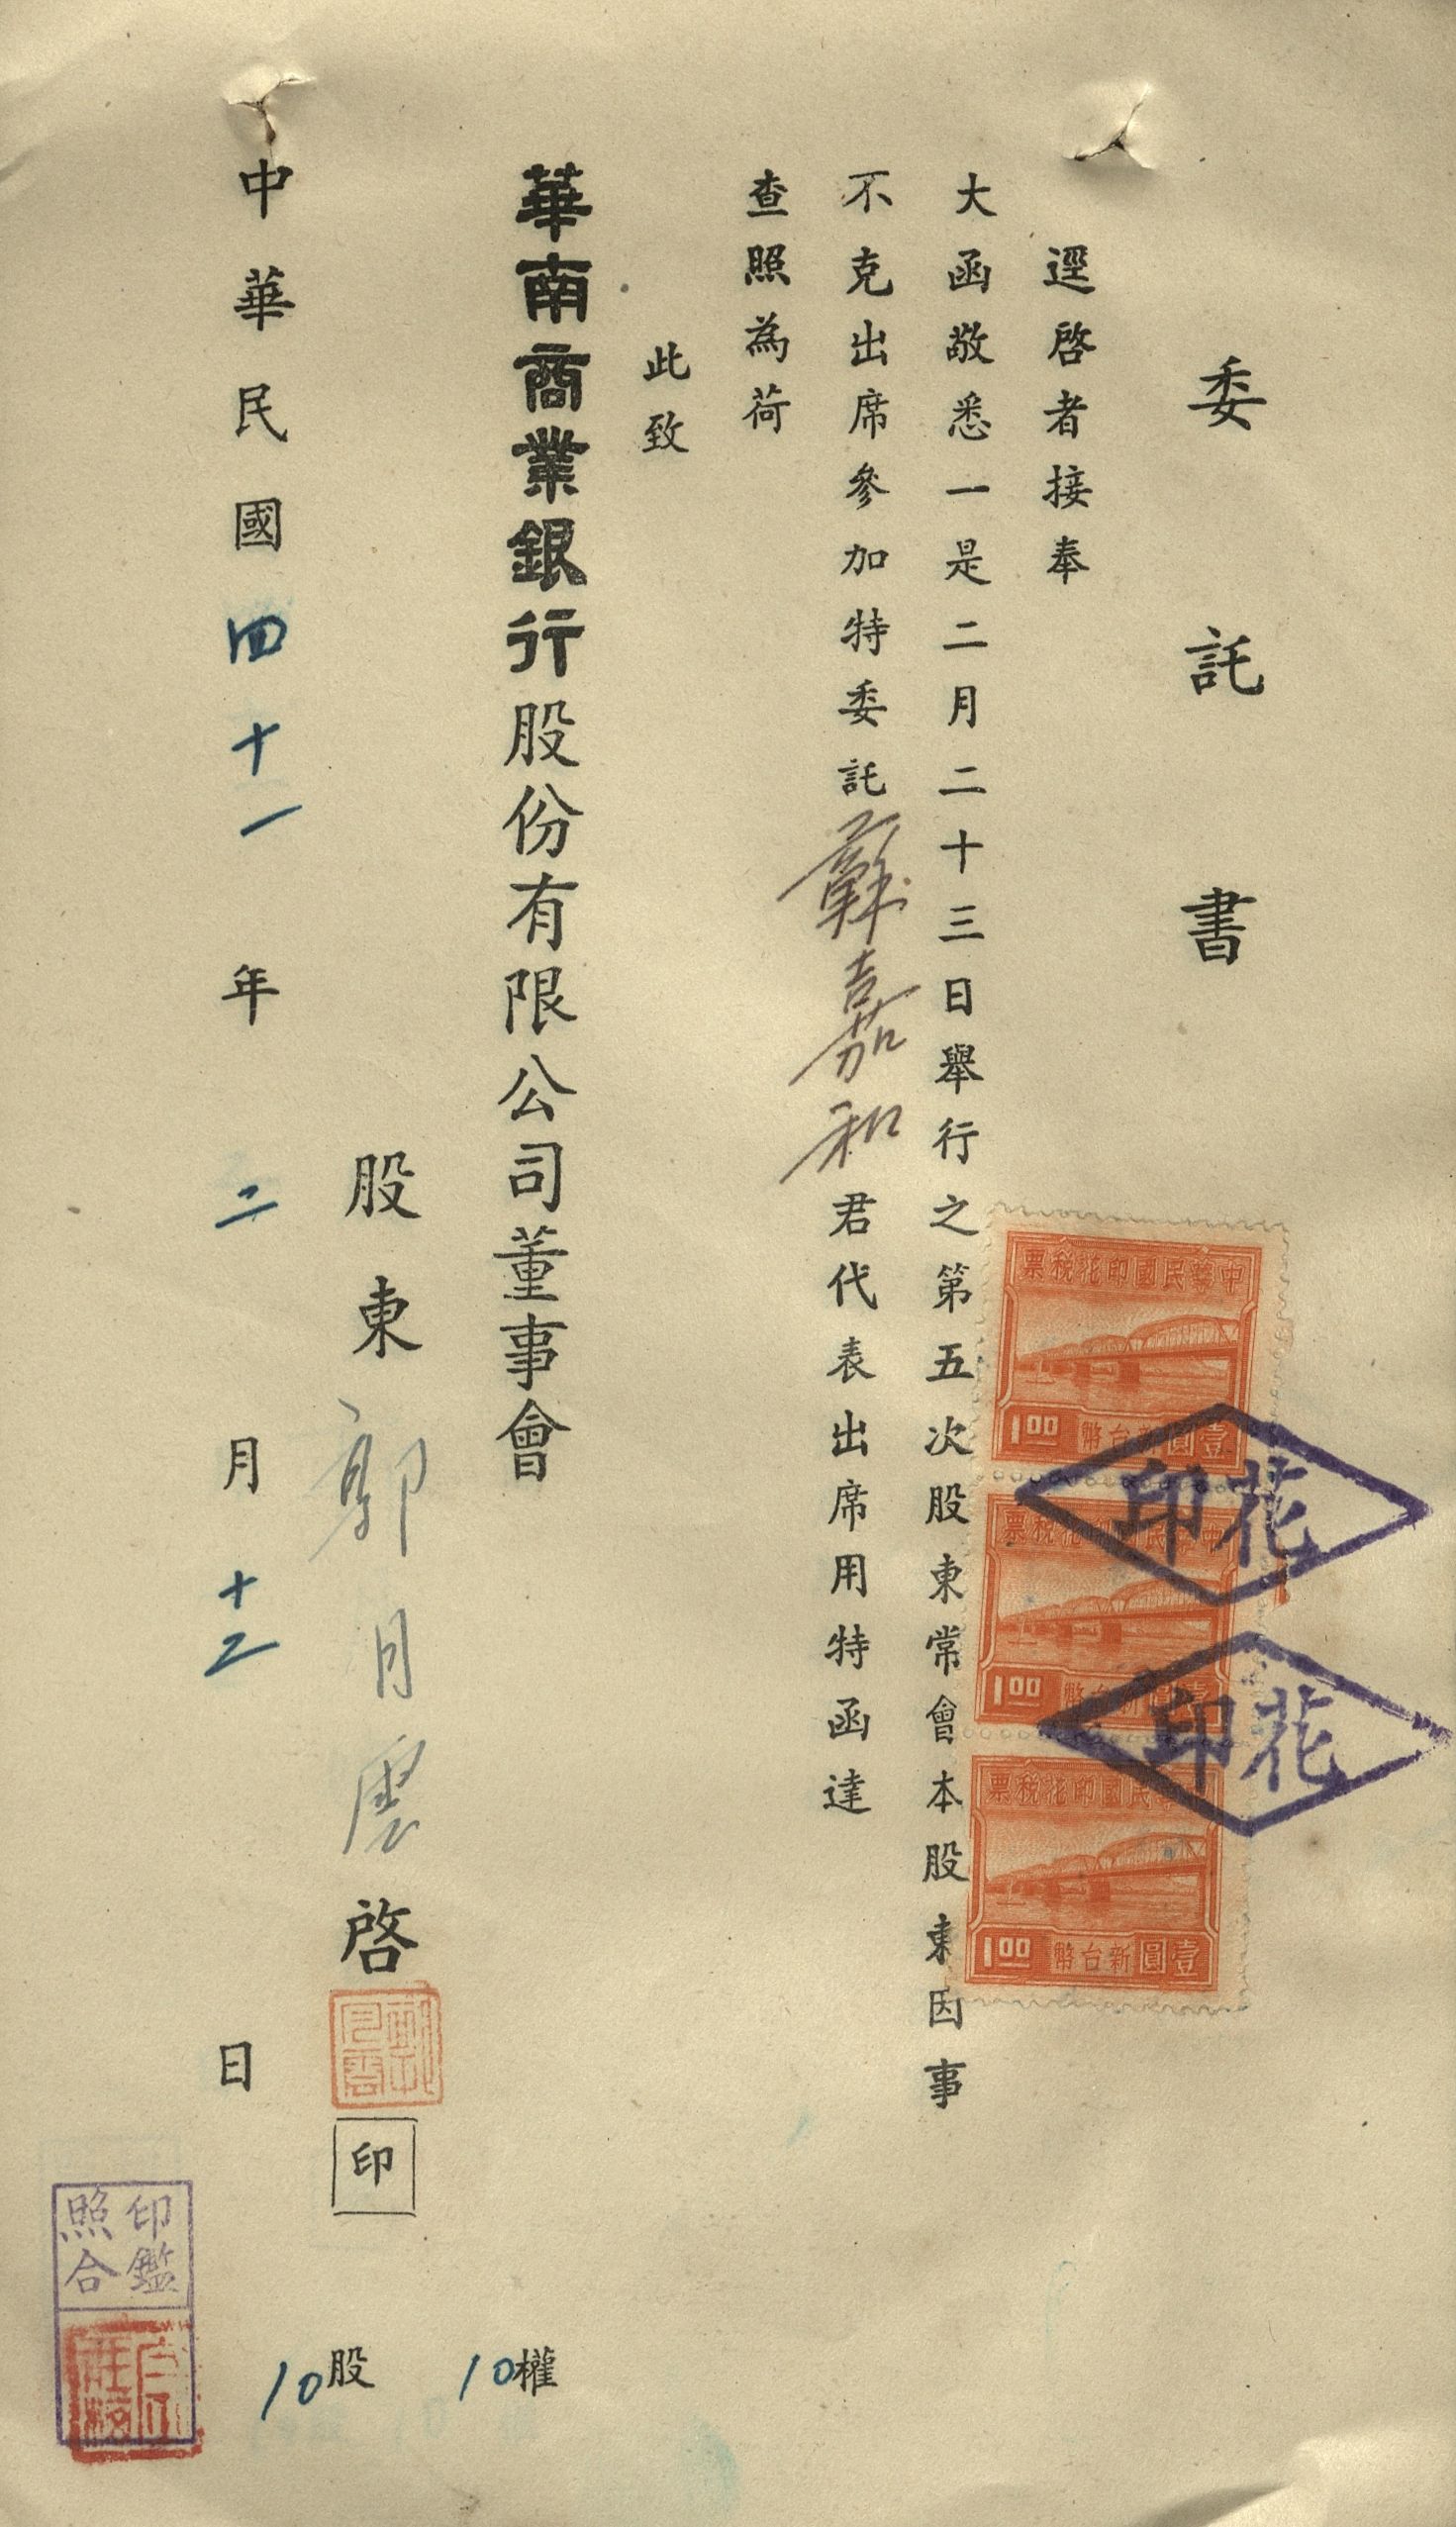 委託書
逕啓者接奉
大函敬悉一是二月二十三日舉行之第五次股東常會本股東因事
不克出席參加特委託蘇嘉和君代表出席用特函達
查照為荷
此致
華南商業銀行股份有限公司董事會
股東郭月雲啓
印
中華民國四十一年二月十二日
10權
10股
印鑑
照合
中華民國印花稅票
壹圓新台幣
1.00
中華民國印花稅票
壹圓新台幣
1.00
民國印花稅票
壹圓新台幣
1.00
花印
花印